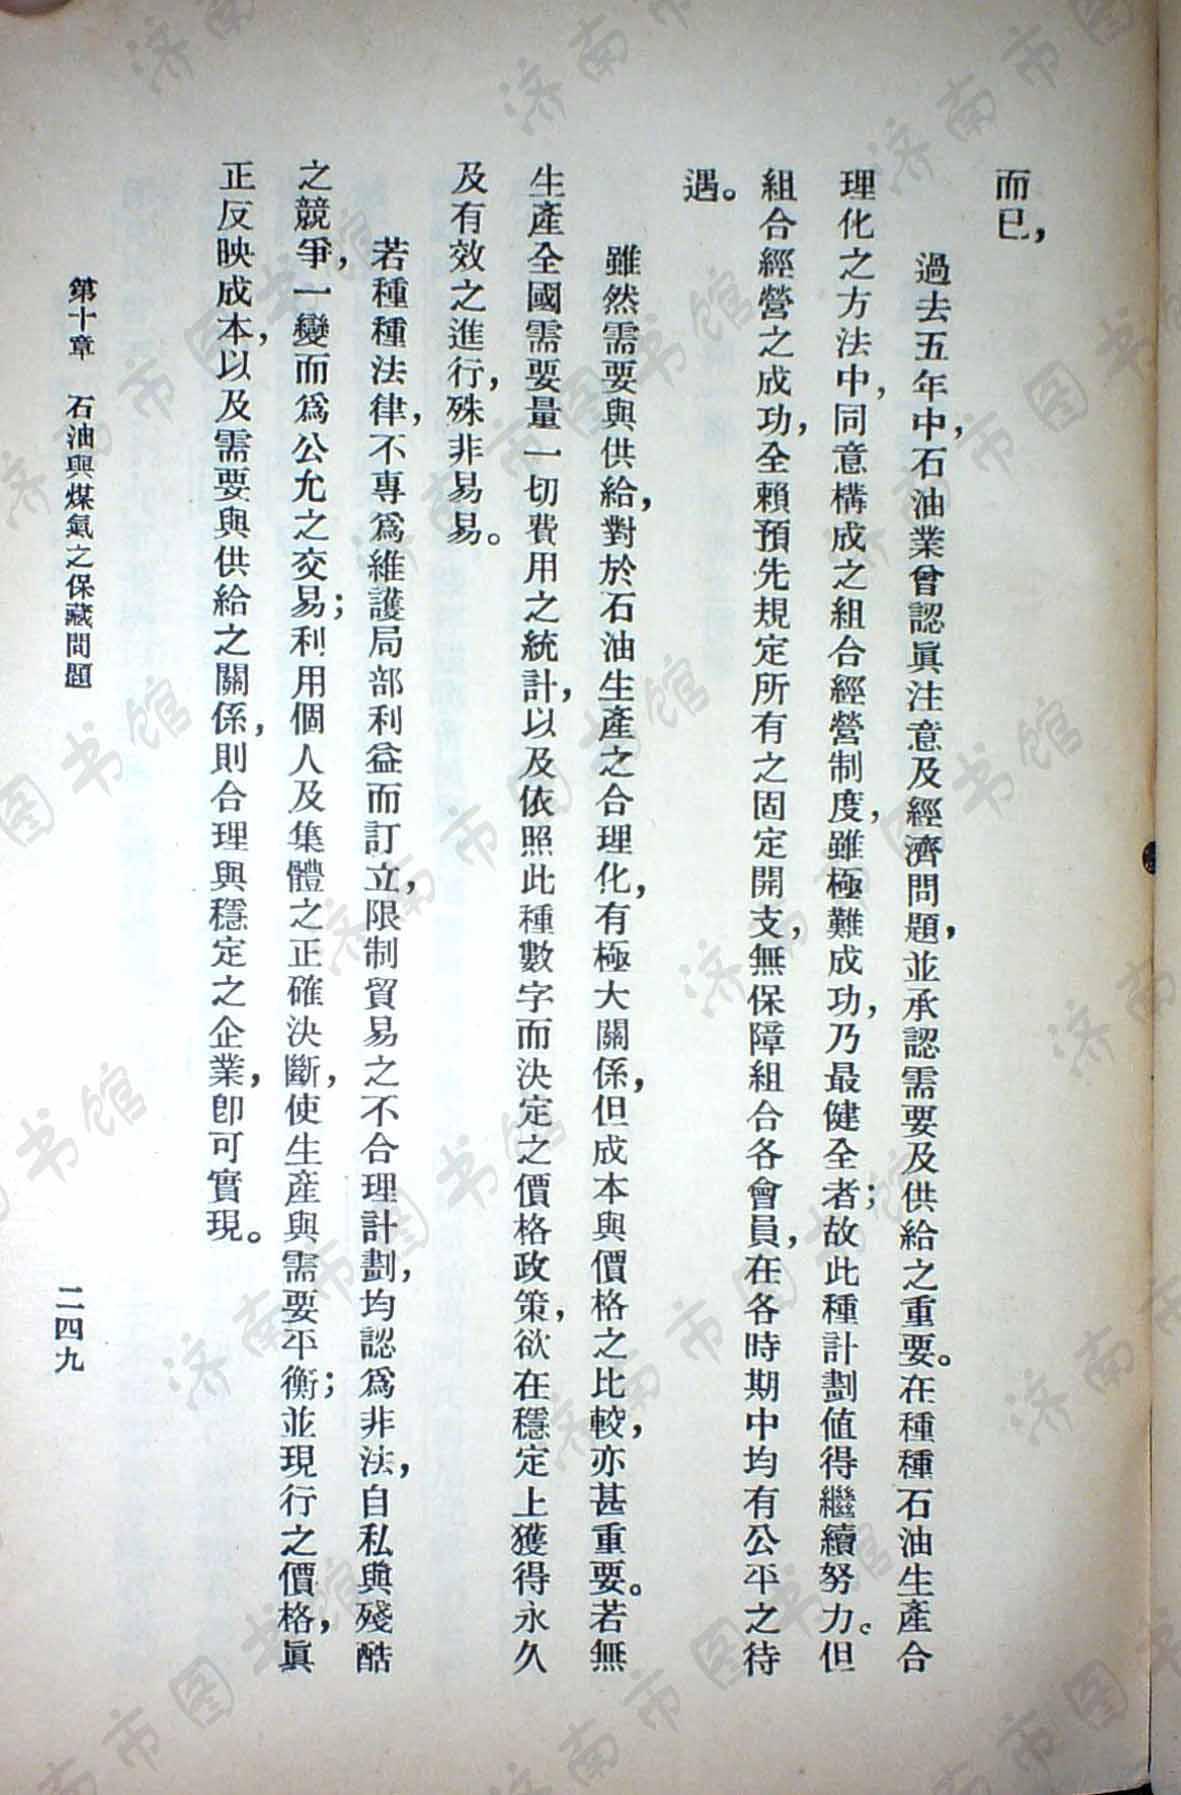 而已，
過去五年中，石油業曾認眞注意及經濟問題，並承認需要及供給之重要。在種種石油生產合
理化之方法中，同意構成之組合經營制度，雖極難成功，乃最健全者；故此種計劃值得繼續努力。但
組合經營之成功，全賴預先規定所有之固定開支，無保障組合各會員，在各時期中均有公平之待
遇。
雖然需要與供給，對於石油生產之合理化，有極大關係，但成本與價格之比較，亦甚重要。若無
生產全國需要量一切費用之統計，以及依照此種數字而決定之價格政策，欲在穩定上獲得永久
及有效之進行，殊非易易。
若種種法律，不專爲維護局部利益而訂立，限制貿易之不合理計劃，均認爲非法，自私與殘酷
之競爭，一變而爲公允之交易；利用個人及集體之正確決斷，使生產與需要平衡；並現行之價格，眞
正反映成本，以及需要與供給之關係，則合理與穩定之企業，卽可實現。
第十章　石油與煤氣之保藏問題
二四九
济南市图书馆